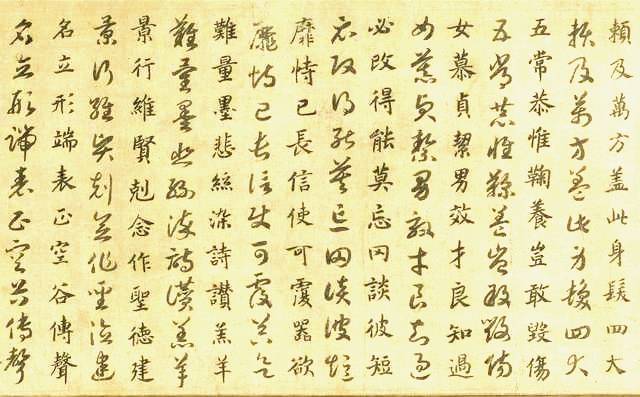 賴及萬方蓋此身髮四大
賴及萬方蓋此身髮四大
五常恭惟鞠養豈敢毀傷
五常恭惟鞠養豈敢毀傷
女慕貞絜男效才良知過
女慕貞絜男效才良知過
必改得能莫忘罔談彼短
必改得能莫忘罔談彼短
靡恃己長信使可覆器欲
靡恃己長信使可覆器欲
難量墨悲絲染詩讚羔羊
難量墨悲絲染詩讚羔羊
景行維賢剋念作聖德建
景行維賢剋念作聖德建
名立形端表正空谷傳聲
名立形端表正空谷傳聲